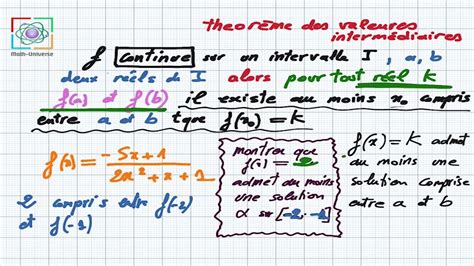 Math-Universe
theorème des valeures
intermédiaires
f continue sur un intervalle I, a, b
deux réels de I alors pour tout réel K
f(a) et f(b) il existe au moins x₀ compris
entre a et b tque f(x₀) = K
f(x) = (-5x+1)/(2x²+x+1)
2 compris entre f(-2)
et f(-1)
montrer que
f(x) = 2
admet au moins
une solution
α sur [-2 -1]
f(x) = K admet
au moins une
solution comprise
entre a et b